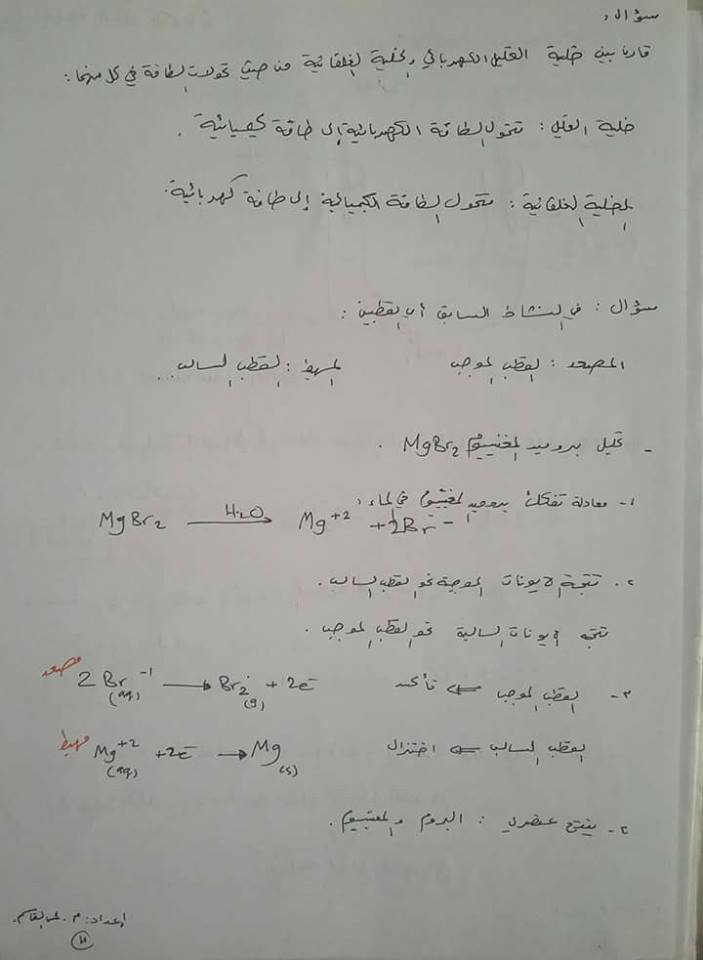 سؤال:
قارن بين خلية التحليل الكهربائي والخلية الغلفانية من حيث تحولات الطاقة في كل منهما:
خلية التحليل: تتحول الطاقة الكهربائية إلى طاقة كيميائية.
الخلية الغلفانية: تتحول الطاقة الكيميائية إلى طاقة كهربائية.
سؤال: في النشاط السابق أي القطبين:
المصعد: القطب الموجب المهبط: القطب السالب..
- تحليل بروميد المغنيسيوم MgBr2.
١- معادلة تفكك بروميد المغنيسيوم في الماء:
MgBr2 —H2O→ Mg+2 + 2Br-1
٢. تتجه الايونات الموجبة نحو القطب السالب.
تتجه الايونات السالبة نحو القطب الموجب.
٣- القطب الموجب ⇐ تأكسد 2Br-1(aq) → Br2(g) + 2e- مصعد
القطب السالب ⇐ اختزال Mg+2(aq) + 2e- → Mg(s) مهبط
٤- ينتج عنصري: البروم والمغنيسيوم.
إعداد: م.
١١